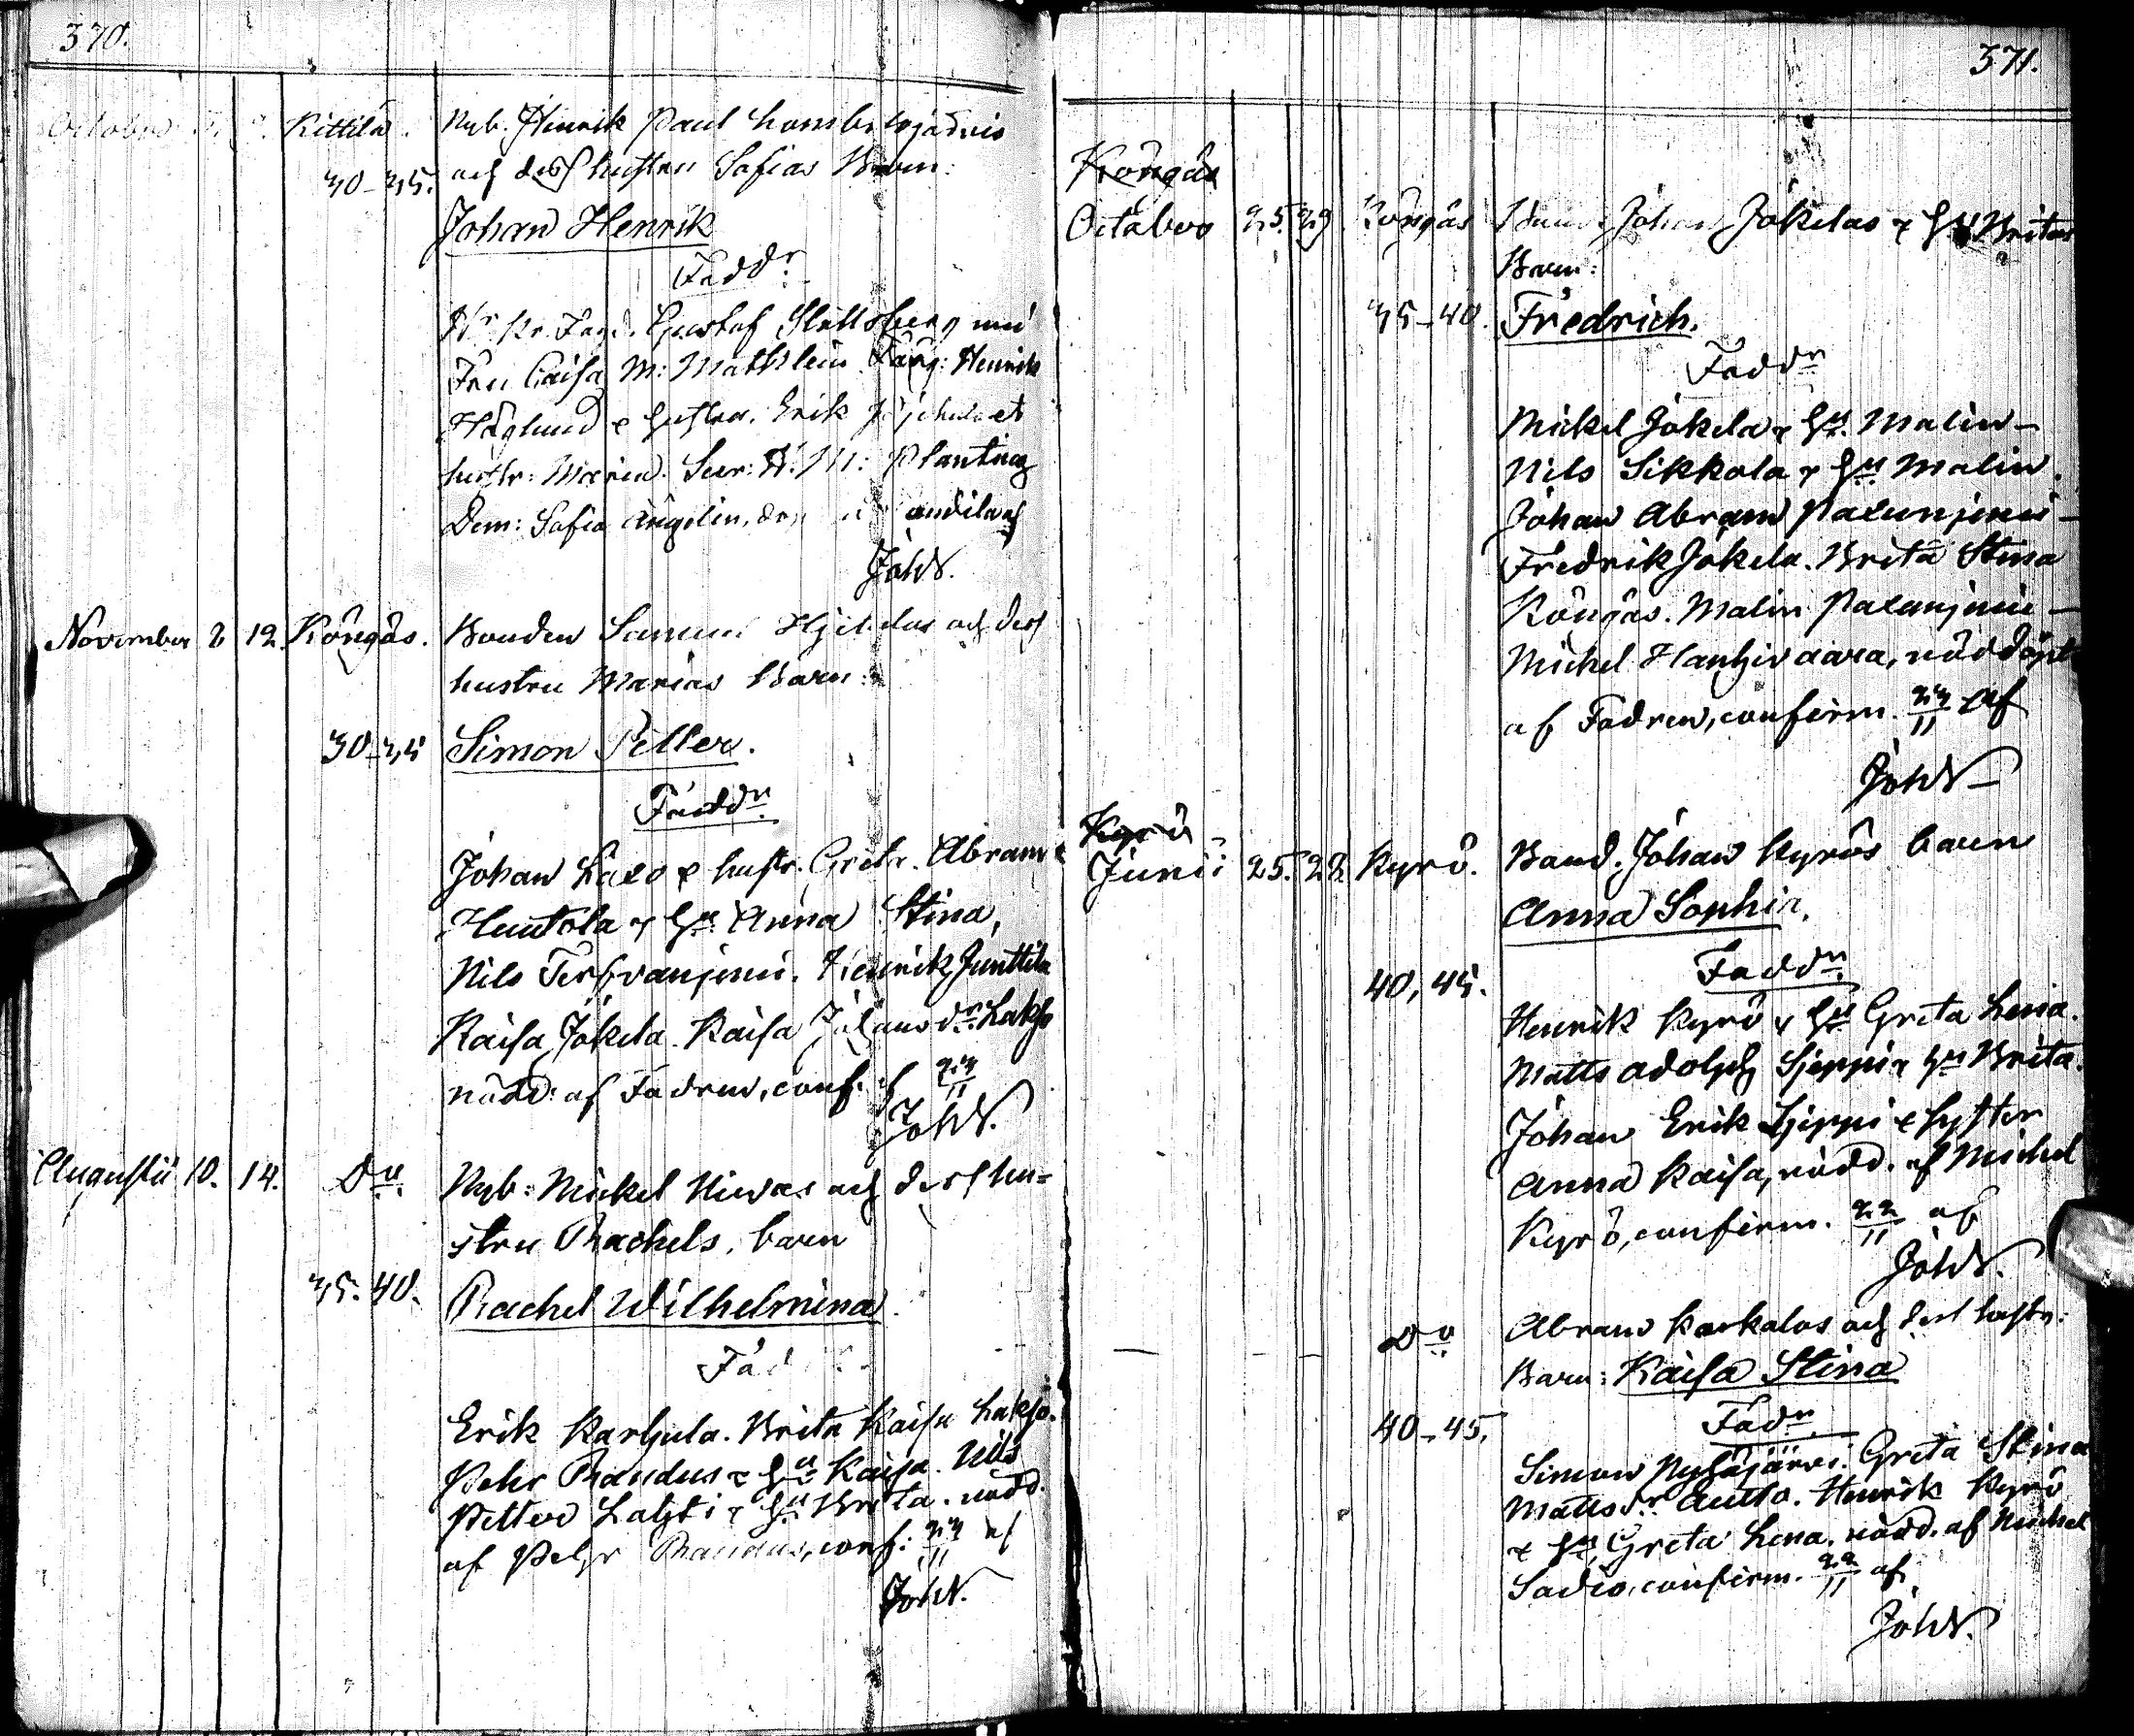 370.
October Kittilä. Nyb. Hinrik Paul
30-35. och dess hustru Sofias Barn:
Johan Henrik
Faddr.
Gustaf
Fru Caisa M: Mathlein Henrik
Höglund & hustru. Erik
hustr: Maria.
Dem: Sofia Angelin,
JohW.
November 2 12. Köngäs. Bonden Samuel och dess
hustru Marias Barn:
30-35 Simon Petter.
Faddr.
Johan Laxo & hustr. Greta. Abram
Huutola & Hu. Anna Stina,
Nils Henrik Junttila
Kaisa Jokela. Kaisa Johansdr. Lakso
nödd: af Fadren, conf. af 23/11
JohW.
Augustii 10. 14. Do. Nyb: Mickel Niwas och dess hu=
stru Rachels, barn
35.40. Rachel Wilhelmina.
Fad
Erik Karhula. Brita Kaisa Lakso.
Pehr Raudus & Hu Kaisa. Nils
Petter Lahti & Hu Brita. nödd.
af Pehr Raudus, conf: 23/11 af
JohW.
371.
Köngäs
October 25. 29 Köngäs Johan Jokelas & Hu Britas
Barn:
35-40. Fredrich.
Faddr
Mickel Jokela & Hu. Malin—
Nils Sikkola & Hu Malin.
Johan Abram Palunjemi—
Fredrik Jokela. Brita Stina
Köngäs. Malin Palunjemi—
Mickel Hangivaara, nöddöpt
af Fadren, confirm. 23/11 af
JohW—
Kyrö
Junii 25. 28 Kyrö. Bond. Johan Kyrös barn
Anna Sophia.
Faddr.
40,45.
Henrik Kyrö & Hu Greta Lena.
Matts Adolph Sjeppi & Hu Brita.
Johan Erik Sjeppi & syster
Anna Kaisa, nödd. af Michel
Kyrö, confirm. 22/11 af
JohW.
Do Abram Karkalas och dess hustr:
Barn: Kaisa Stina
40-45. Fadr
Simon Nyhäjärvi. Greta Stina
Mattsdr. Autto. Henrik Kyrö
& Hu, Greta Lena. nödd. af Michel
Sadio, confirm. 22/11 af
JohW.